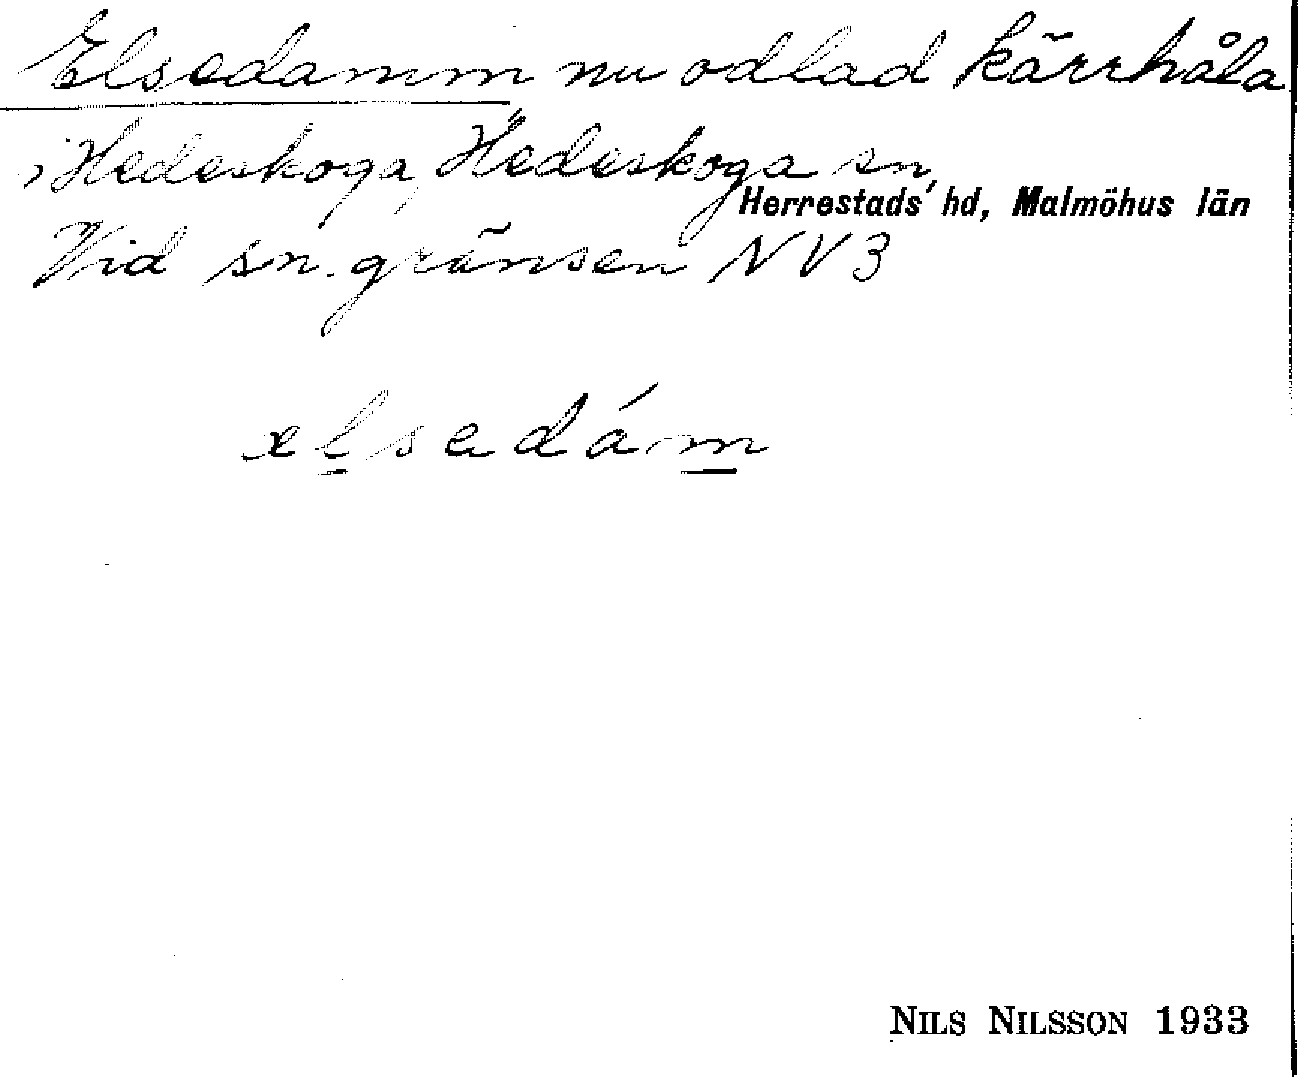 Elsedamm nu odlad kärrhåla
i Hedeskoga, Hedeskoga sn,
Herrestads hd, Malmöhus län
Vid sn. gränsen NV3
ælsedám
NILS NILSSON 1933